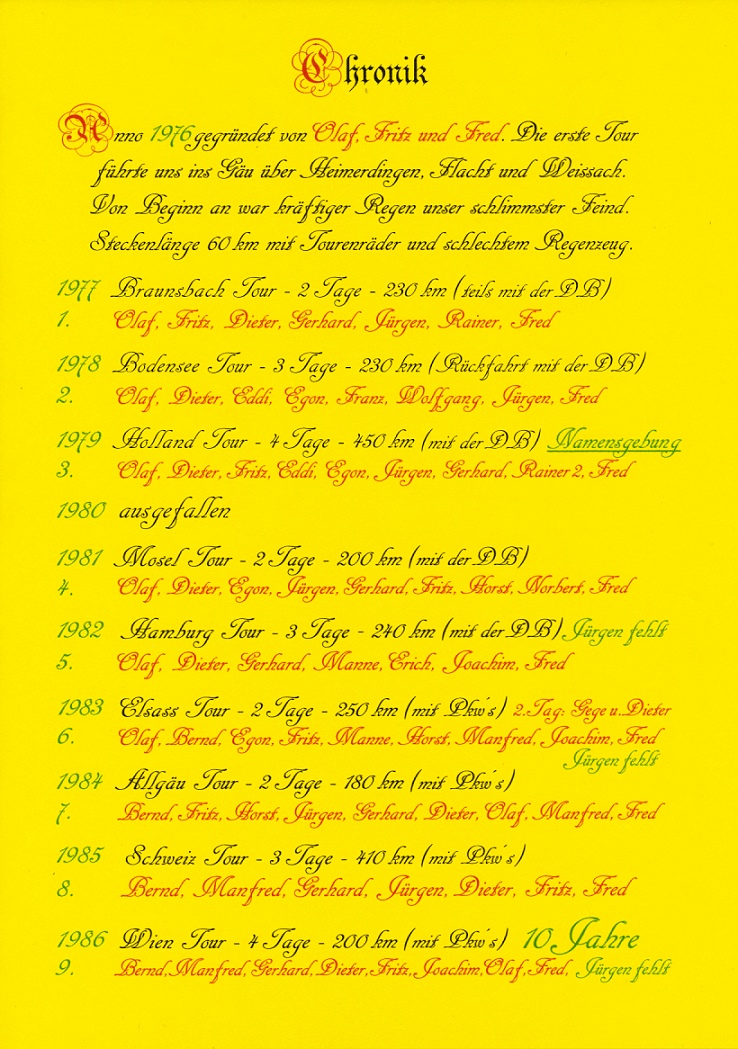 Chronik
Anno 1976 gegründet von Olaf, Fritz und Fred. Die erste Tour
führte uns ins Gäu über Heimerdingen, Flacht und Weissach.
Von Beginn an war kräftiger Regen unser schlimmster Feind.
Steckenlänge 60 km mit Tourenräder und schlechtem Regenzeug.
1977 Braunsbach Tour - 2 Tage - 230 km (teils mit der DB)
1. Olaf, Fritz, Dieter, Gerhard, Jürgen, Rainer, Fred
1978 Bodensee Tour - 3 Tage - 230 km (Rückfahrt mit der DB)
2. Olaf, Dieter, Eddi, Egon, Franz, Wolfgang, Jürgen, Fred
1979 Holland Tour - 4 Tage - 450 km (mit der DB) Namensgebung
3. Olaf, Dieter, Fritz, Eddi, Egon, Jürgen, Gerhard, Rainer 2, Fred
1980 ausgefallen
1981 Mosel Tour - 2 Tage - 200 km (mit der DB)
4. Olaf, Dieter, Egon, Jürgen, Gerhard, Fritz, Horst, Norbert, Fred
1982 Hamburg Tour - 3 Tage - 240 km (mit der DB) Jürgen fehlt
5. Olaf, Dieter, Gerhard, Manne, Erich, Joachim, Fred
1983 Elsass Tour - 2 Tage - 250 km (mit Pkw's) 2.Tag: Gege u. Dieter
6. Olaf, Bernd, Egon, Fritz, Manne, Horst, Manfred, Joachim, Fred
Jürgen fehlt
1984 Allgäu Tour - 2 Tage - 180 km (mit Pkw's)
7. Bernd, Fritz, Horst, Jürgen, Gerhard, Dieter, Olaf, Manfred, Fred
1985 Schweiz Tour - 3 Tage - 410 km (mit Pkw's)
8. Bernd, Manfred, Gerhard, Jürgen, Dieter, Fritz, Fred
1986 Wien Tour - 4 Tage - 200 km (mit Pkw's) 10 Jahre
9. Bernd, Manfred, Gerhard, Dieter, Fritz, Joachim, Olaf, Fred, Jürgen fehlt